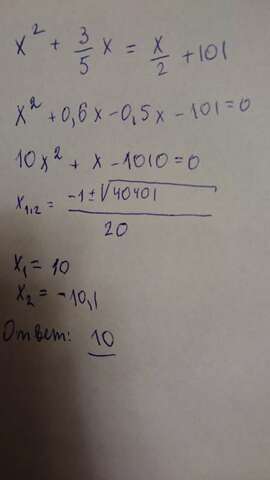 x² + 3/5 x = x/2 + 101
x² + 0,6x - 0,5x - 101 = 0
10x² + x - 1010 = 0
x₁,₂ = (-1 ± √40401) / 20
x₁ = 10
x₂ = -10,1
Ответ: 10